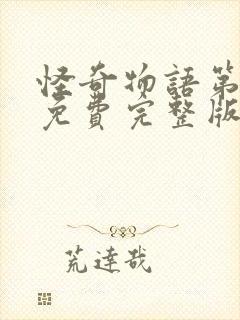 怪奇物語第
免費完整版
荒達哉